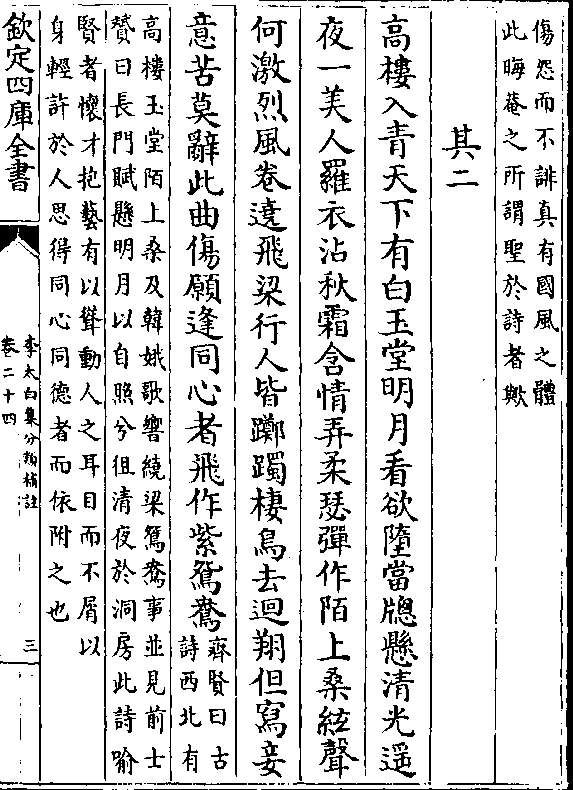 傷怨而不誹真有國風之體
此晦菴之所謂聖於詩者歟
其二
高樓入青天下有白玉堂明月看欲墮當牕懸清光遥
夜一美人羅衣沾秋霜含情弄柔瑟彈作陌上桑絃聲
何激烈風卷遶飛梁行人皆躑躅棲鳥去迴翔但寫妾
意苦莫辭此曲傷願逢同心者飛作紫鴛鴦
齊賢曰古
詩西北有
高樓玉堂陌上桑及韓娥歌響繞梁鴛鴦事並見前士
贇曰長門賦懸明月以自照兮徂清夜於洞房此詩喻
賢者懷才抱藝有以聳動人之耳目而不屑以
身輕許於人思得同心同德者而依附之也
欽定四庫全書
李太白集分類補註
卷二十四
三